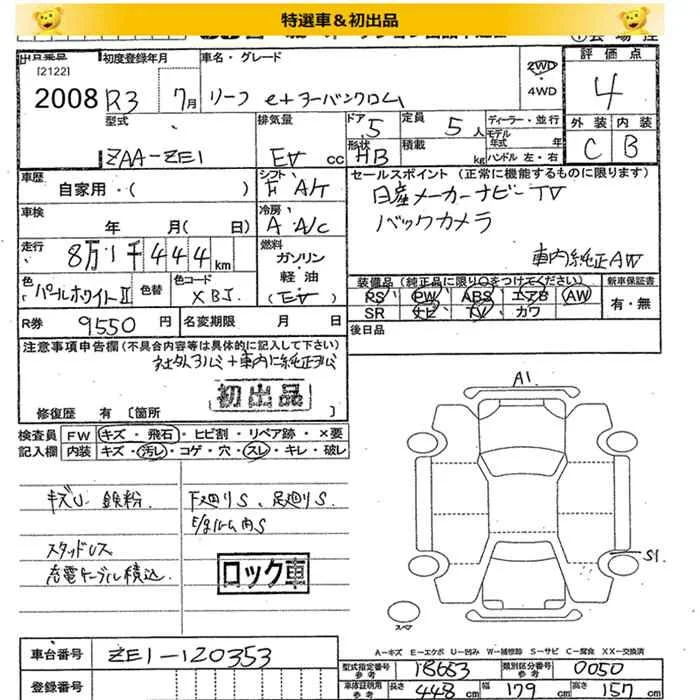 特選車&初出品
出品番号
[2122]
2008
初度登録年月
R3 7月
車名・グレード
リーフ e+ アーバンクロム
2WD
4WD
評価点
4
型式
ZAA-ZE1
排気量
EV cc
ドア 5
形状 HB
定員 5人
積載 kg
ディーラー・並行
モデル年式 年
ハンドル 左・右
外装 内装
C B
車歴
自家用・( )
シフト
F A/T
セールスポイント (正常に機能するものに限ります)
日産メーカーナビ TV
バックカメラ
車内純正AW
車検
年 月( 日)
冷房
A A/C
走行
8万1千444km
燃料
ガソリン・軽油
(EV)
色
パールホワイトⅡ
色替
色コード
XBJ
装備品 (純正品に限り○をつけてください)
新車保証書
PS PW ABS エアB AW
有・無
SR ナビ TV カワ
R券 9550円
名変期限 月 日
後日品
注意事項申告欄 (不具合内容等は具体的に記入して下さい)
社外アルミ+車内に純正アルミ
初出品
修復歴 有 [箇所 ]
検査員 FW キズ・飛石・ヒビ割・リペア跡・×要
記入欄 内装 キズ・汚レ・コゲ・穴・スレ・キレ・破レ
キズU 鉄粉
下廻りS、足廻りS
スタッドレス
充電ケーブル積込
ロック車
A1
S1
スマ
A-キズ E-エクボ U-凹み W-補修跡 S-サビ C-腐食 XX-交換済
車台番号 ZE1-120353
型式指定番号 参考 18653
類別区分番号 参考 0050
登録番号
車庫証明用 参考 長さ 448cm 幅 179cm 高さ 157cm